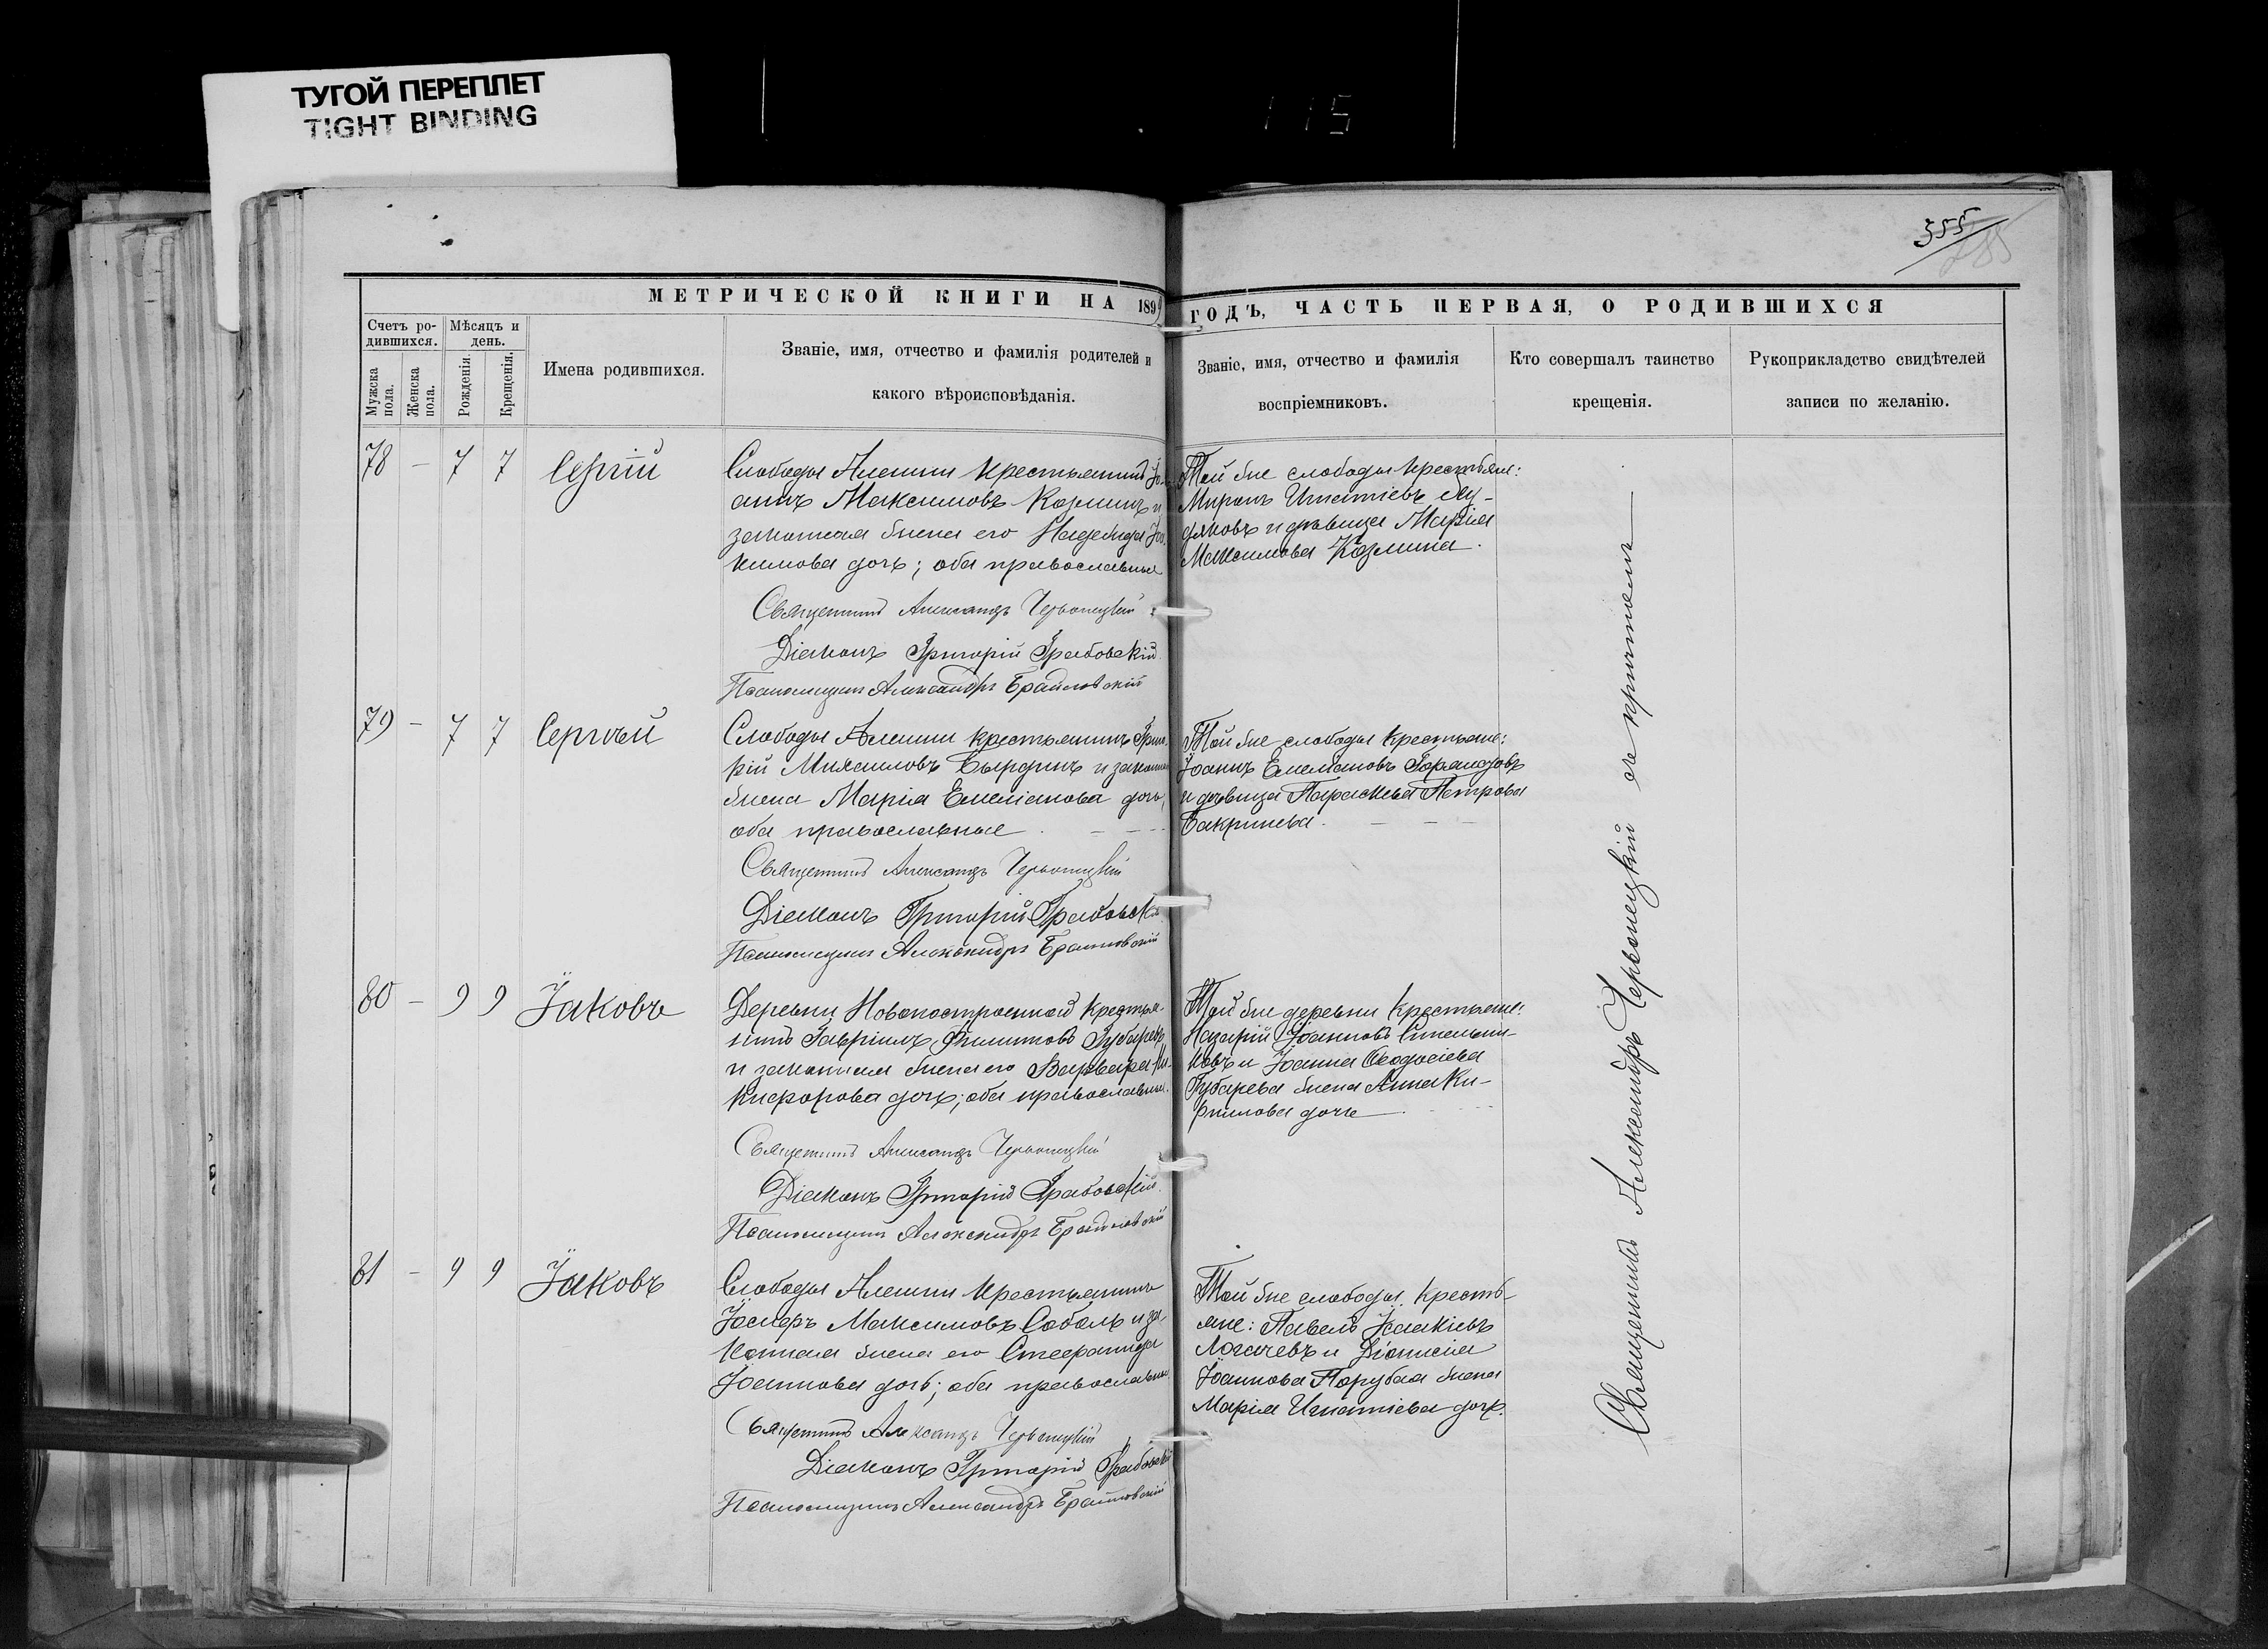 ТУГОЙ ПЕРЕПЛЕТ
TIGHT BINDING
115
355
МЕТРИЧЕСКОЙ КНИГИ НА 189
ГОДЪ, ЧАСТЬ ПЕРВАЯ, О РОДИВШИХСЯ
Счетъ ро-
дившихся.
Мѣсяцъ и
день.
Мужска
пола.
Женска
пола.
Рожденія.
Крещенія.
Имена родившихся.
Званіе, имя, отчество и фамилія родителей и
какого вѣроисповѣданія.
Званіе, имя, отчество и фамилія
воспріемниковъ.
Кто совершалъ таинство
крещенія.
Рукоприкладство свидѣтелей
записи по желанію.
78 – 7 7 Сергій
Слободы Алешни крестьянинъ Іо-
аннъ Максимовъ Козминъ и
законная жена его Надежда
кимова дочь; оба православные
Священникъ Александръ Червонецкій
Діаконъ Григорій Грабовскій
Псаломщикъ Александръ Браиловскій
Той же слободы крестьяне:
Миронъ Игнатіевъ
и дѣвица Марія
Максимова Козмина.
79 – 7 7 Сергѣй
Слободы Алешни крестьянинъ
Михаиловъ и законная
жена Марія Емеліанова дочь,
оба православные
Священникъ Александръ Червонецкій
Діаконъ Григорій Грабовскій
Псаломщикъ Александръ Браиловскій
Той же слободы крестьяне:
Іоаннъ Емеліановъ
и дѣвица Параскева Петрова
80 – 9 9 Іаковъ
Деревни Новопостроенной крестья-
нинъ Гавріилъ Филипповъ Губаревъ
и законная жена его Варвара Ни-
кифорова дочь; оба православные.
Священникъ Александръ Червонецкій
Діаконъ Григорій Грабовскій
Псаломщикъ Александръ Браиловскій
Той же деревни крестьяне:
Назарій Іоанновъ Синельни-
ковъ и Іоанна Ѳеодосіева
Губарева жена Анна Ки-
риллова дочь
81 – 9 9 Іаковъ
Слободы Алешни крестьянинъ
Іосифъ Максимовъ Соболь и за-
конная жена его Стефанида
Іоаннова дочь; оба православные
Священникъ Александръ Червонецкій
Діаконъ Григорій Грабовскій
Псаломщикъ Александръ Браиловскій
Той же слободы кресть-
яне: Павелъ Исаакіевъ
Логачевъ и Діонисія
Іоаннова Порубая жена
Марія Игнатіева дочь.
Священникъ Александръ Червонецкій съ причтомъ